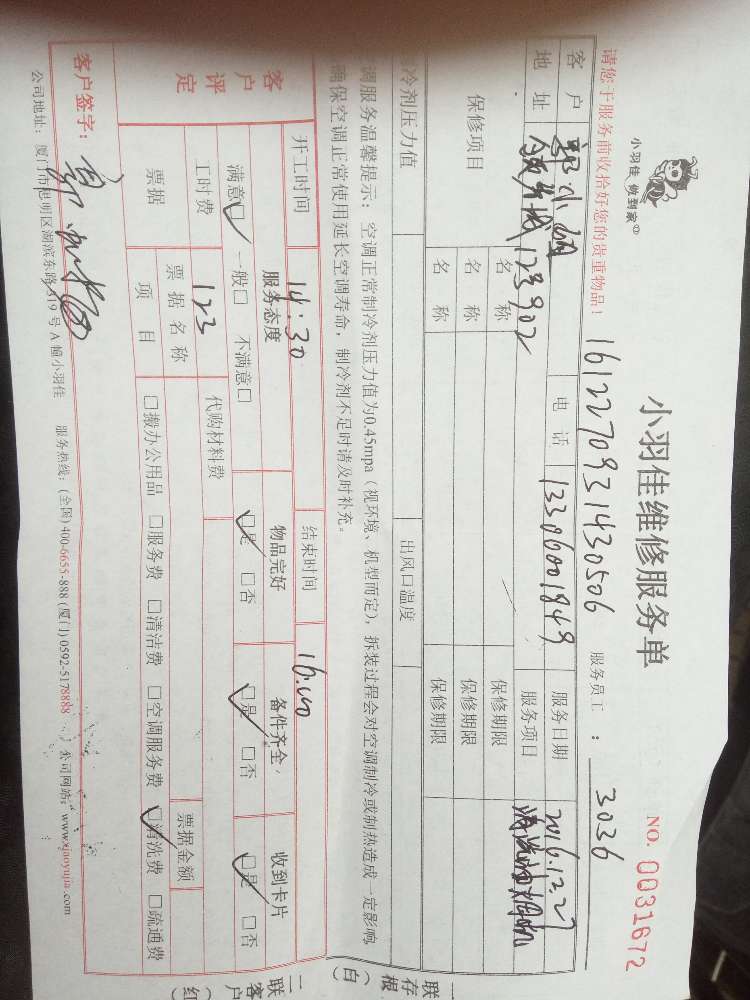 小羽佳 做到家
小羽佳维修服务单
NO. 0031672
请您于服务前收拾好您的贵重物品!
161227093143050​6
服务员工: 3036
客户 郭小姐 电话 13306001849 服务日期 2016.12.27
地址 123902 服务项目 清洗油烟机
保修项目 名称 保修期限
名称 保修期限
名称 保修期限
冷剂压力值 出风口温度
调服务温馨提示: 空调正常制冷剂压力值为0.45mpa(视环境、机型而定), 拆装过程会对空调制冷或制热造成一定影响,
确保空调正常使用延长空调寿命, 制冷剂不足时请及时补充。
开工时间 14:30 结束时间 16:00
客户评定 服务态度 物品完好 备件齐全 收到卡片
满意☑ 一般□ 不满意□ ☑是 □否 ☑是 □否 ☑是 □否
工时费 123 代购材料费
票据 票据名称 票据金额
项目 □搬办公用品 □服务费 □清洁费 □空调服务费 ☑清洗费 □疏通费
客户签字:
公司地址: 厦门市思明区湖滨东路319号A幢小羽佳 服务热线: (全国) 400-6655-888 (厦门) 0592-5178888 公司网站: www.xiaoyujia.com
联存根(白)
二联客户(红